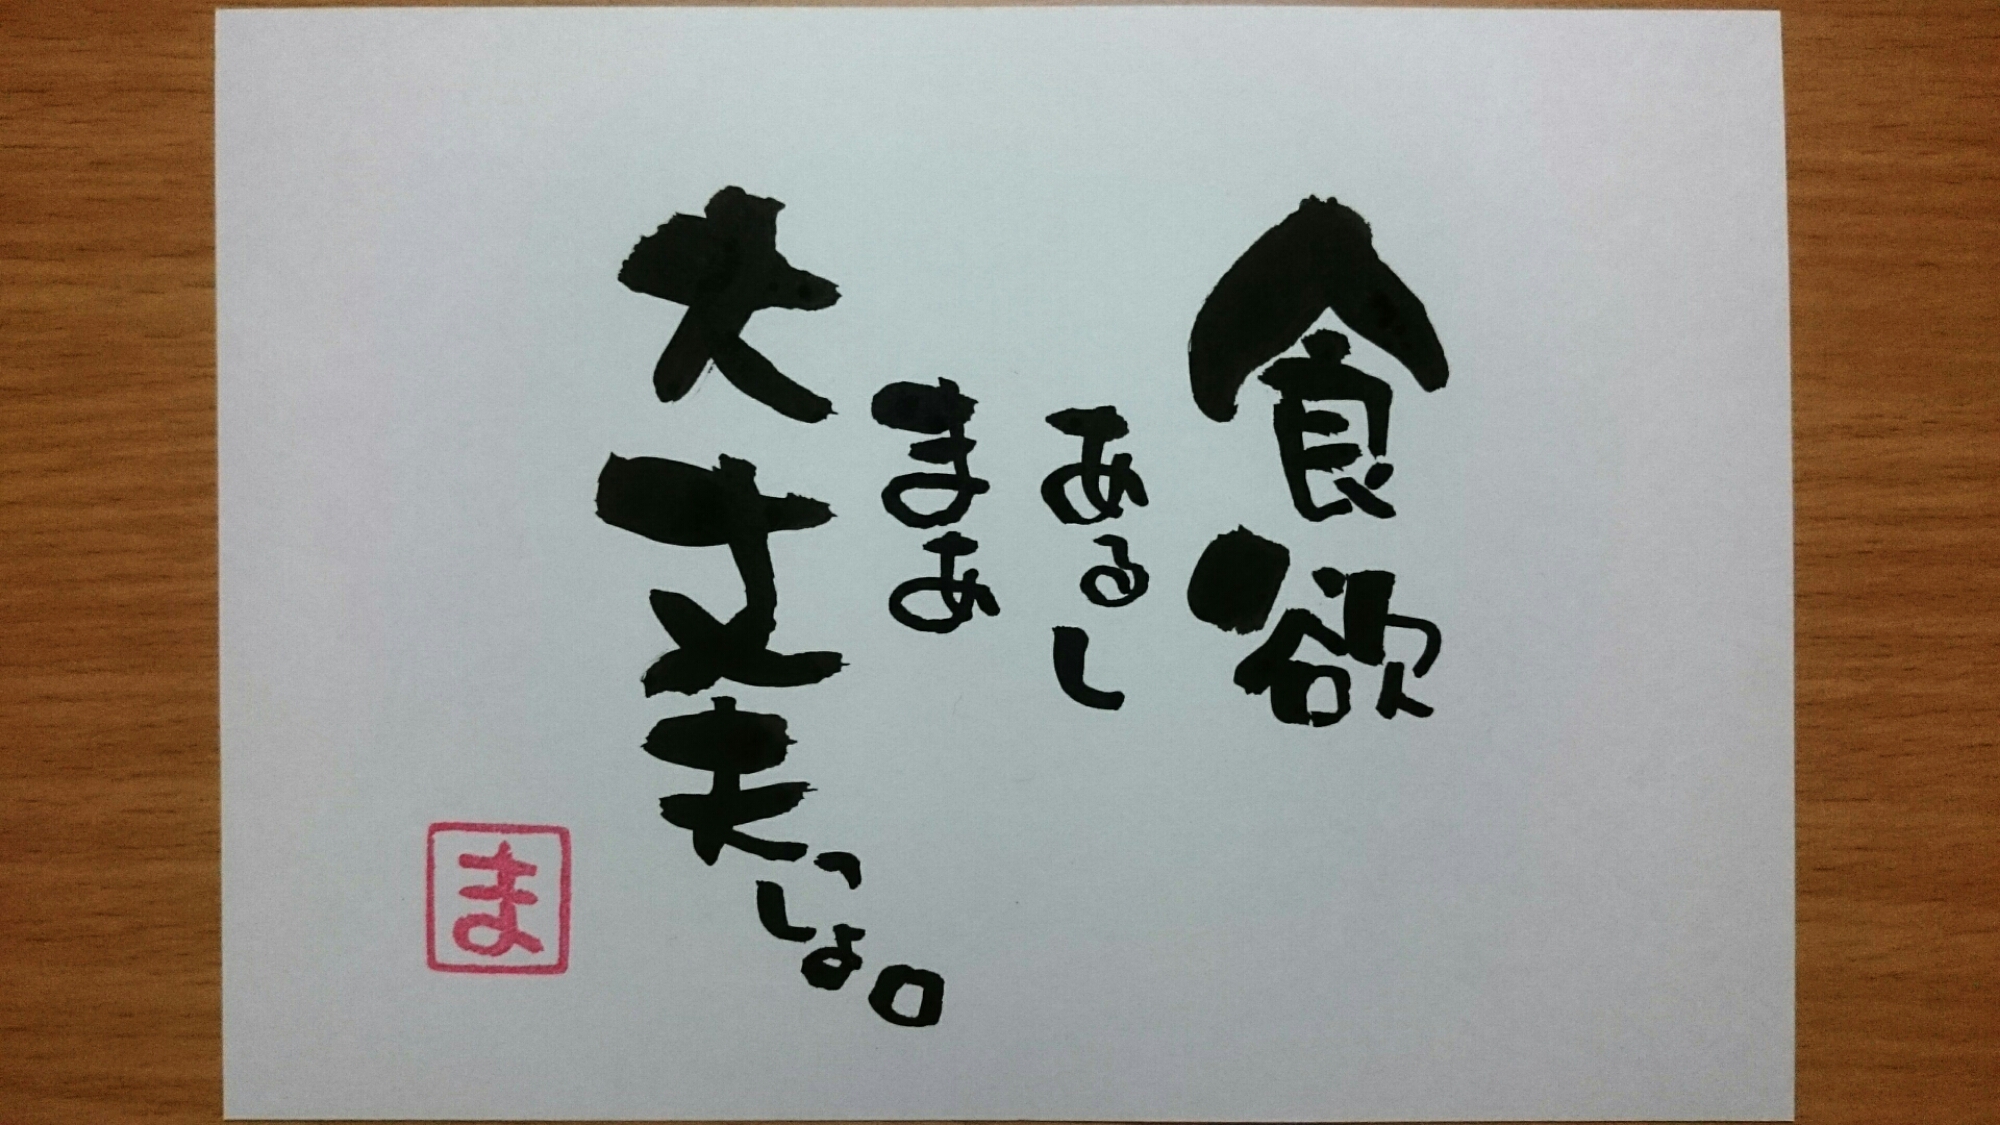 食欲
あるし
まあ
大丈夫っしょ。
ま